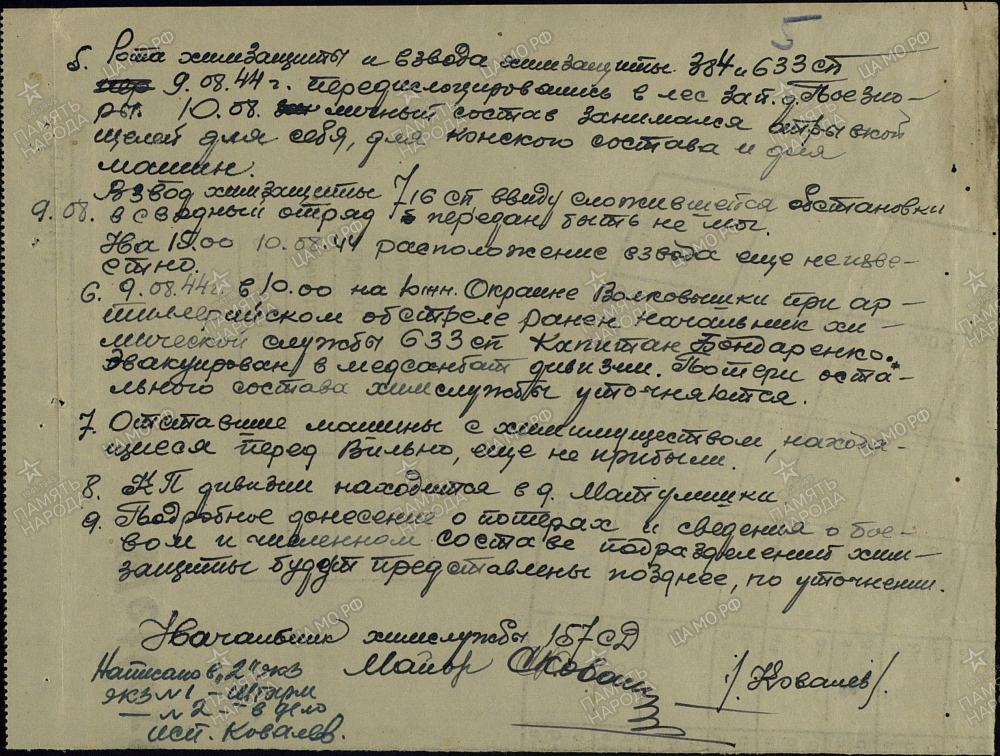 5
5. Рота химзащиты и взвода химзащиты 384 и 633 сп
9.08.44 г. передислоцировались в лес зап. д. Поезио-
ры. 10.08. личный состав занимался отрывкой
щелей для себя, для конского состава и для
машин.
Взвод химзащиты 716 сп ввиду сложившейся обстановки
9.08. в сводный отряд передан быть не мог.
На 19.00 10.08.44 расположение взвода еще неизве-
стно.
6. 9.08.44г. в 10.00 на южн. Окраине Волковышки при ар-
тиллерийском обстреле ранен начальник хи-
мической службы 633 сп Капитан Бондаренко.
Эвакуирован в медсанбат дивизии. Потери оста-
льного состава химслужбы уточняются.
7. Отставшие машины с химимуществом, находя-
щиеся перед Вильно, еще не прибыли.
8. КП дивизии находится в д. Матулишки
9. Подробное донесение о потерях и сведения о бое-
вом и численном составе подразделений хим-
защиты будут представлены позднее, по уточнении.
Начальник химслужбы 157 СД
Майор СКовал /Ковалев/.
Написано в "2" экз
экз №1 – Штарм
– №2 – в дело
исп. Ковалев.
ПАМЯТЬ НАРОДА
ЦАМО.РФ